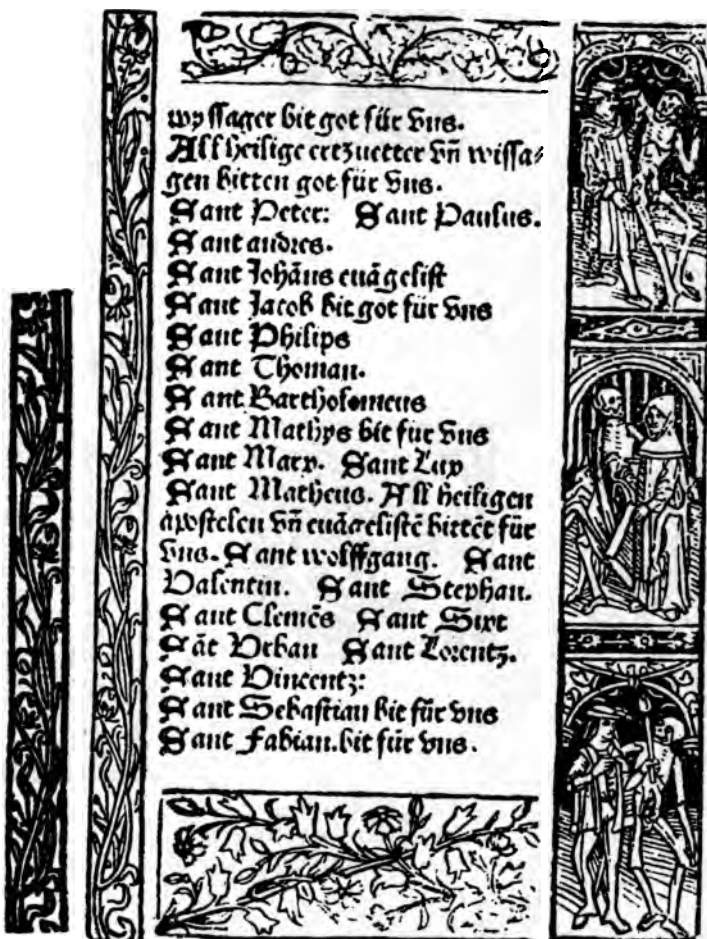 wyssager bit got für vns.
All heilige ertzuetter vn̄ wissa⸗
gen bitten got für vns.
Sant Peter: Sant Paulus.
Sant andres.
Sant Johāns euāgelist
Sant Jacob bit got für vns
Sant Philips
Sant Thoman.
Sant Bartholomeus
Sant Mathys bit fur vns
Sant Marx. Sant Lux
Sant Matheus. All heiligen
apostelen vn̄ euāgelistē bittēt für
vns. Sant wolffgang. Sant
Valentin. Sant Stephan.
Sant Clemēs Sant Sixt
Sāt Vrban Sant Lorentz.
Sant Vincentz:
Sant Sebastian bit für vns
Sant Fabian. bit für vns.